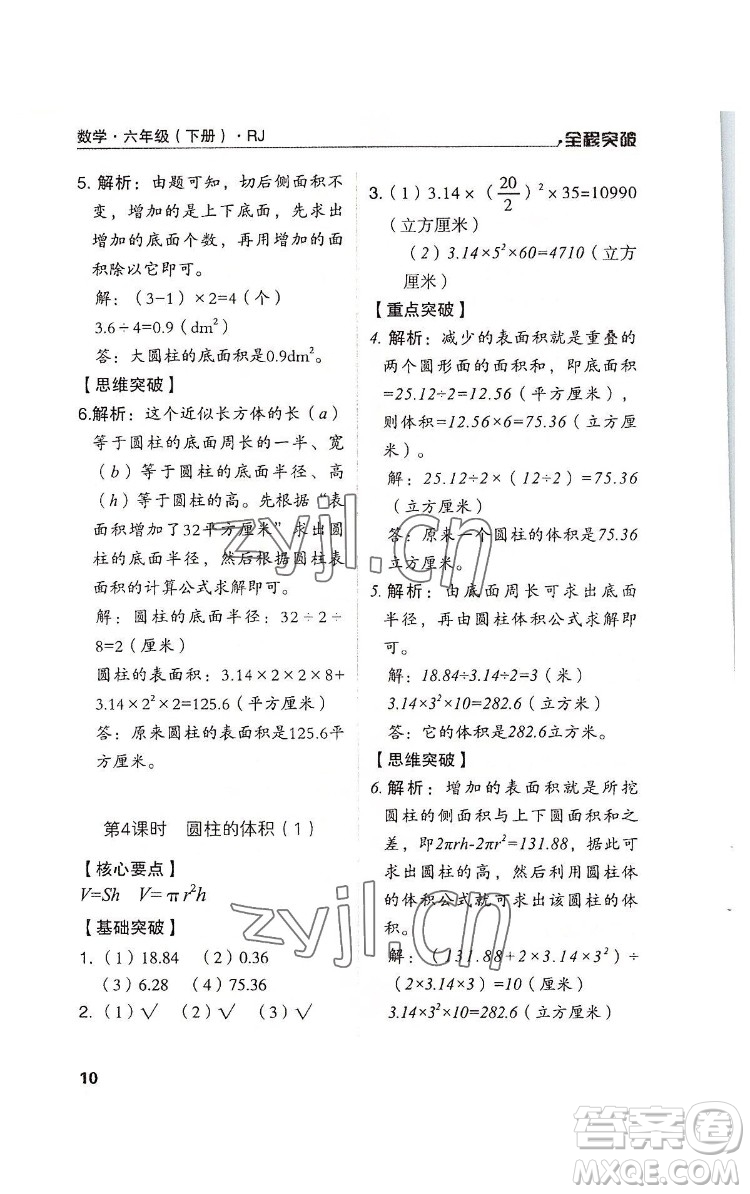 数学·六年级（下册）·RJ
全程突破
5. 解析：由题可知，切后侧面积不
变，增加的是上下底面，先求出
增加的底面个数，再用增加的面
积除以它即可。
解：（3-1）×2=4（个）
3.6÷4=0.9（dm²）
答：大圆柱的底面积是0.9dm²。
【思维突破】
6.解析：这个近似长方体的长（a）
等于圆柱的底面周长的一半、宽
（b）等于圆柱的底面半径、高
（h）等于圆柱的高。先根据“表
面积增加了32平方厘米”求出圆
柱的底面半径，然后根据圆柱表
面积的计算公式求解即可。
解：圆柱的底面半径：32÷2÷
8=2（厘米）
圆柱的表面积：3.14×2×2×8+
3.14×2²×2=125.6（平方厘米）
答：原来圆柱的表面积是125.6平
方厘米。
第4课时　圆柱的体积（1）
【核心要点】
V=Sh　V=πr²h
【基础突破】
1.（1）18.84　（2）0.36
（3）6.28　（4）75.36
2.（1）√　（2）√　（3）√
3.（1）3.14×（20/2）²×35=10990
（立方厘米）
（2）3.14×5²×60=4710（立方
厘米）
【重点突破】
4. 解析：减少的表面积就是重叠的
两个圆形面的面积和，即底面积
=25.12÷2=12.56（平方厘米），
则体积=12.56×6=75.36（立方厘
米）。
解：25.12÷2×（12÷2）=75.36
（立方厘米）
答：原来一个圆柱的体积是75.36
立方厘米。
5. 解析：由底面周长可求出底面
半径，再由圆柱体积公式求解即
可。
解：18.84÷3.14÷2=3（米）
3.14×3²×10=282.6（立方米）
答：它的体积是282.6立方米。
【思维突破】
6. 解析：增加的表面积就是所挖
圆柱的侧面积与上下圆面积和之
差，即2πrh-2πr²=131.88，由此可
求出圆柱的高，然后利用圆柱体
的体积公式就可求出该圆柱的体
积。
解：（131.88+2×3.14×3²）÷
（2×3.14×3）=10（厘米）
3.14×3²×10=282.6（立方厘米）
10
zyjl.cn
zyjl.cn
答案卷
MXQE.COM